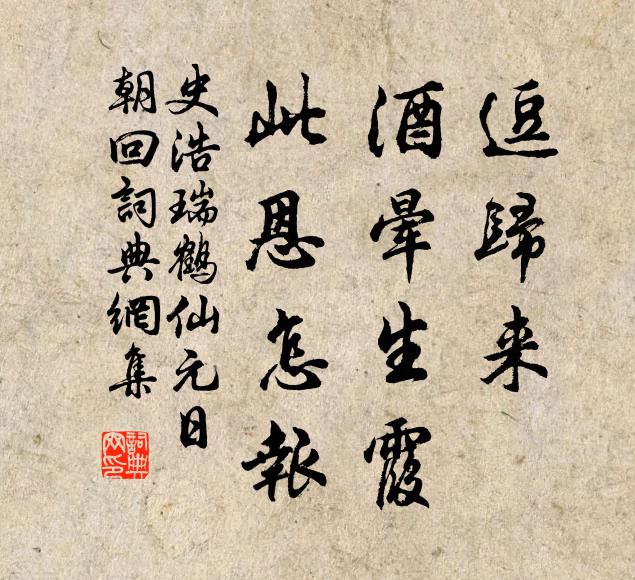 逗歸来
酒暈生霞
此恩怎報
史浩瑞鶴仙元日
朝回詞典網集
詞典网印